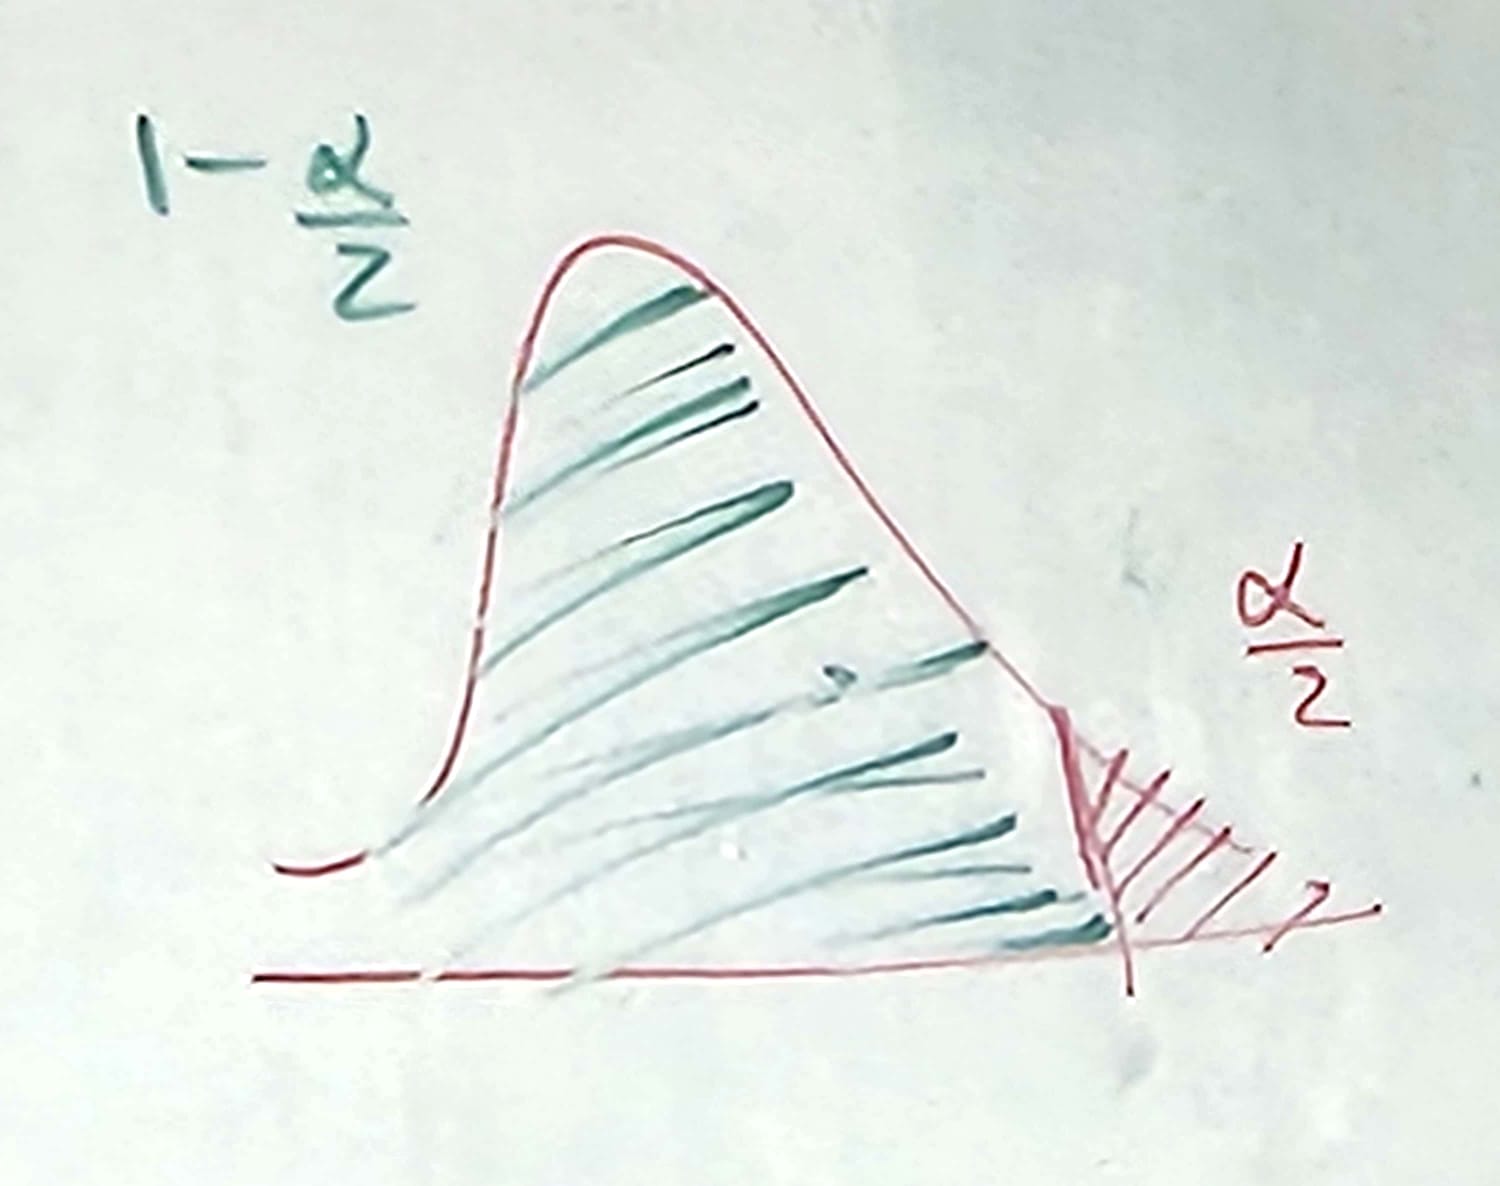 1 - α/2
α/2